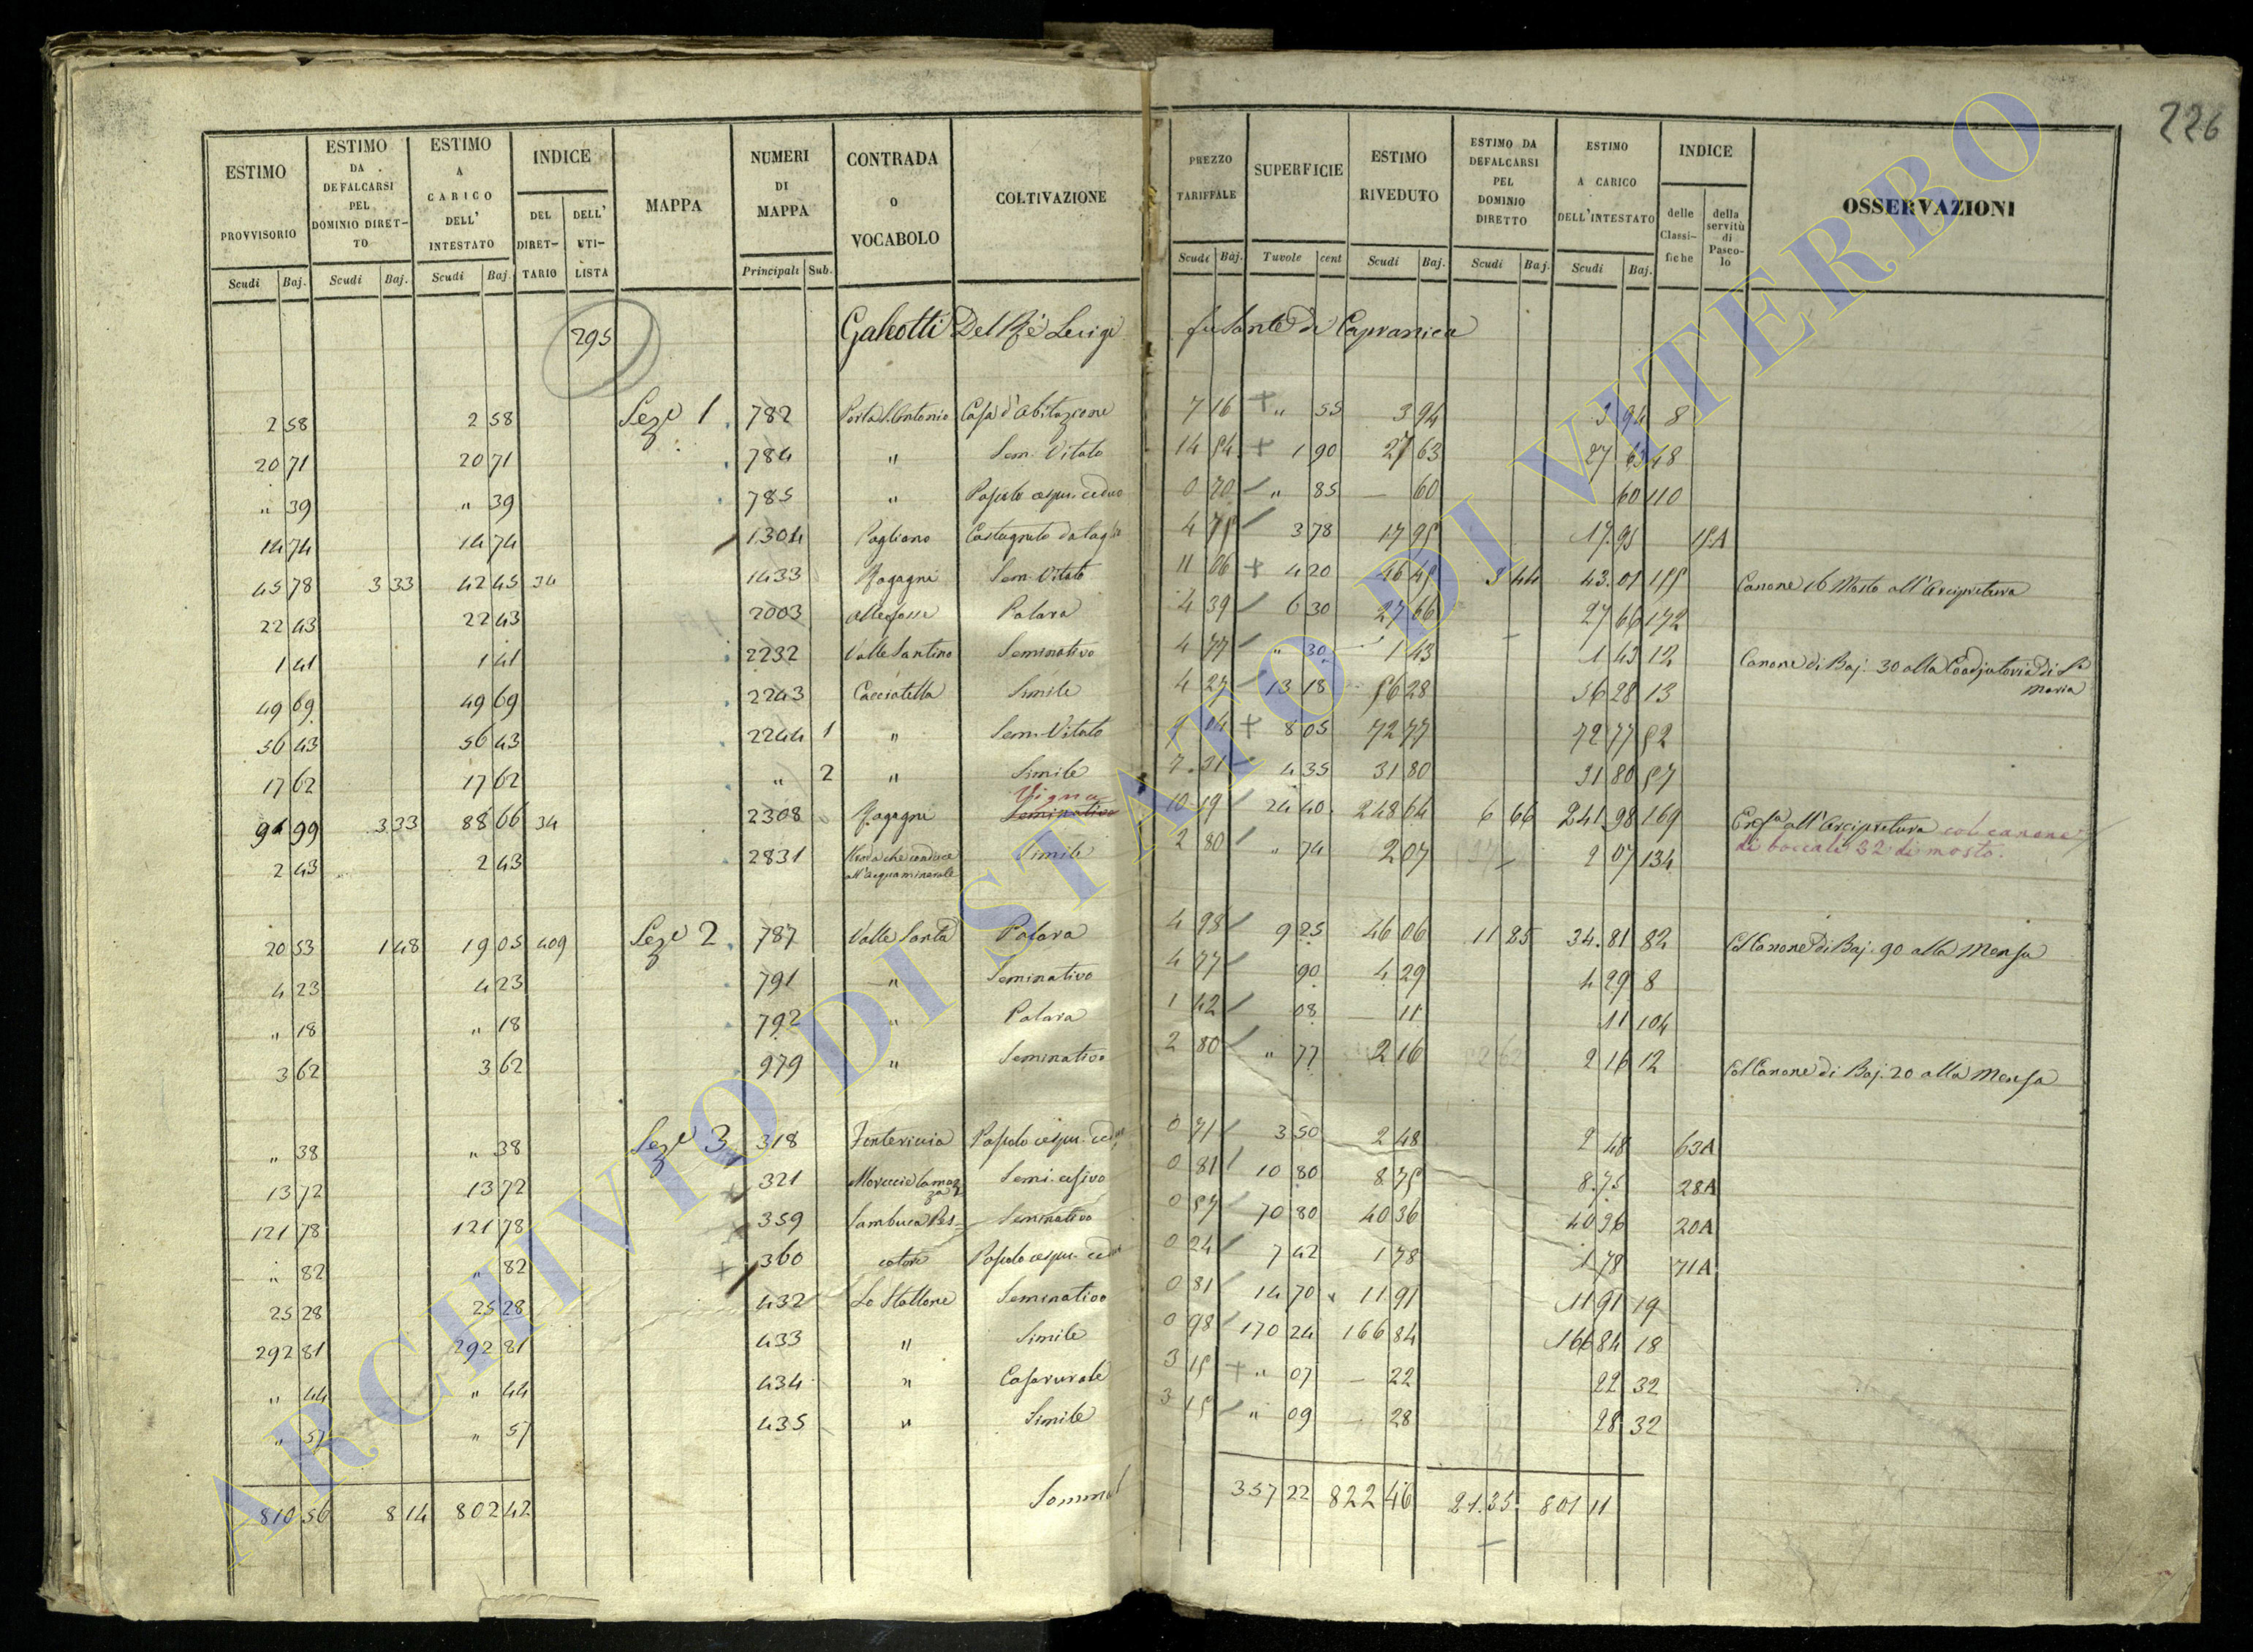 226
ESTIMO PROVVISORIO | ESTIMO DA DEFALCARSI PEL DOMINIO DIRETTO | ESTIMO A CARICO DELL' INTESTATO | INDICE | MAPPA | NUMERI DI MAPPA | CONTRADA O VOCABOLO | COLTIVAZIONE | PREZZO TARIFFALE | SUPERFICIE | ESTIMO RIVEDUTO | ESTIMO DA DEFALCARSI PEL DOMINIO DIRETTO | ESTIMO A CARICO DELL'INTESTATO | INDICE | OSSERVAZIONI
DEL DIRETTARIO | DELL' UTILISTA | delle Classifiche | della servitù di Pascolo
Scudi | Baj. | Scudi | Baj. | Scudi | Baj. | Principali | Sub. | Scudi | Baj. | Tavole | cent | Scudi | Baj. | Scudi | Baj. | Scudi | Baj.
295 Galeotti Del Rè Luigi fu Sante di Capranica
2 58 | 2 58 | Seze 1 | 782 | Porta S. Antonio | Casa d'Abitazione | 7 16 | + " 55 | 3 94 | 3 94 | 8
20 71 | 20 71 | 784 | " | Sem. Vitato | 14 54 | + 1 90 | 27 63 | 27 63 | 48
" 39 | " 39 | 785 | " | Pascolo cespu. ceduo | 0 70 | " 85 | — 60 | 60 | 110
14 74 | 14 74 | 1304 | Pogliano | Castagneto da taglio | 4 75 | 3 78 | 17 95 | 17.95 | 15A
45 78 | 3 33 | 42 45 | 34 | 1433 | Ragagni | Sem. Vitato | 11 06 | + 4 20 | 46 45 | 3 44 | 43.01 | 155 | Canone 16 Mosto all'Arcipretura
22 43 | 22 43 | 2003 | Allefosse | Palara | 4 39 | 6 30 | 27 66 | 27 66 | 172
1 41 | 1 41 | 2232 | Valle Santino | Seminativo | 4 77 | " 30 | 1 43 | 1 43 | 12 | Canone di Baj. 30 alla Coadjutoria di Sa Maria
49 69 | 49 69 | 2243 | Cacciatella | Simile | 4 27 | 13 18 | 56 28 | 56 28 | 13
56 43 | 56 43 | 2244 | 1 | " | Sem. Vitato | 9 04 | + 8 05 | 72 77 | 72 77 | 52
17 62 | 17 62 | " | 2 | " | Simile | 7.31 | 4 35 | 31 80 | 31 80 | 57
91 99 | 3 33 | 88 66 | 34 | 2308 | Ragagni | Seminativo Vigna | 10 19 | 24 40 | 248 64 | 6 66 | 241 98 | 169 | all'Arcipretura col canone di boccali 32 di mosto.
2 43 | 2 43 | 2831 | Strada che conduce all'acqua minerale | Simile | 2 80 | " 74 | 2 07 | 2 07 | 134
20 53 | 1 48 | 19 05 | 409 | Seze 2 | 787 | Valle Santa | Palara | 4 98 | 9 25 | 46 06 | 11 25 | 34.81 | 82 | Col Canone di Baj. 90 alla Mensa
4 23 | 4 23 | 791 | " | Seminativo | 4 77 | 90 | 4 29 | 4 29 | 8
" 18 | " 18 | 792 | " | Palara | 1 42 | 08 | — 11 | 11 | 104
3 62 | 3 62 | 979 | " | Seminativo | 2 80 | " 77 | 2 16 | 2 16 | 12 | Col Canone di Baj. 20 alla Mensa
" 38 | " 38 | Seze 3 | 318 | Pascolo cespu. ceduo | 0 71 | 3 50 | 2 48 | 2 48 | 63A
13 72 | 13 72 | 321 | Semi. | 0 81 | 10 80 | 8 75 | 8.75 | 28A
121 78 | 121 78 | 359 | Sambuca Pes- | Seminativo | 0 57 | 70 80 | 40 36 | 40 36 | 20A
" 82 | " 82 | 360 | catore | Pascolo cespu. ceduo | 0 24 | 7 42 | 1 78 | 1 78 | 71A
25 28 | 25 28 | 432 | Lo Stallone | Seminativo | 0 81 | 14 70 | 11 91 | 11 91 | 19
292 81 | 292 81 | 433 | " | Simile | 0 98 | 170 24 | 166 84 | 166 84 | 18
" 44 | " 44 | 434 | " | Casa rurale | 3 15 | + " 07 | — 22 | 22 | 32
" 57 | " 57 | 435 | " | Simile | 3 15 | " 09 | 28 | 28 | 32
810 56 | 8 14 | 802 42 | Somma | 357 22 | 822 46 | 21.35 | 801 11
ARCHIVIO DI STATO DI VITERBO